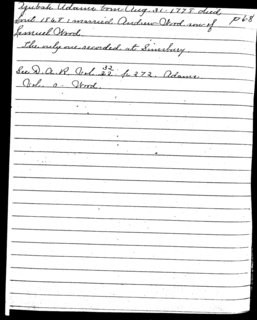 Adams born Aug. 31-1778 died
Sept. 1868: married Andrew Wood son of
p 68
Samuel Wood.
The only one recorded at Simsbury
See D. A. R. Vol. 32 p. 272. Adams
Vol. o Wood.